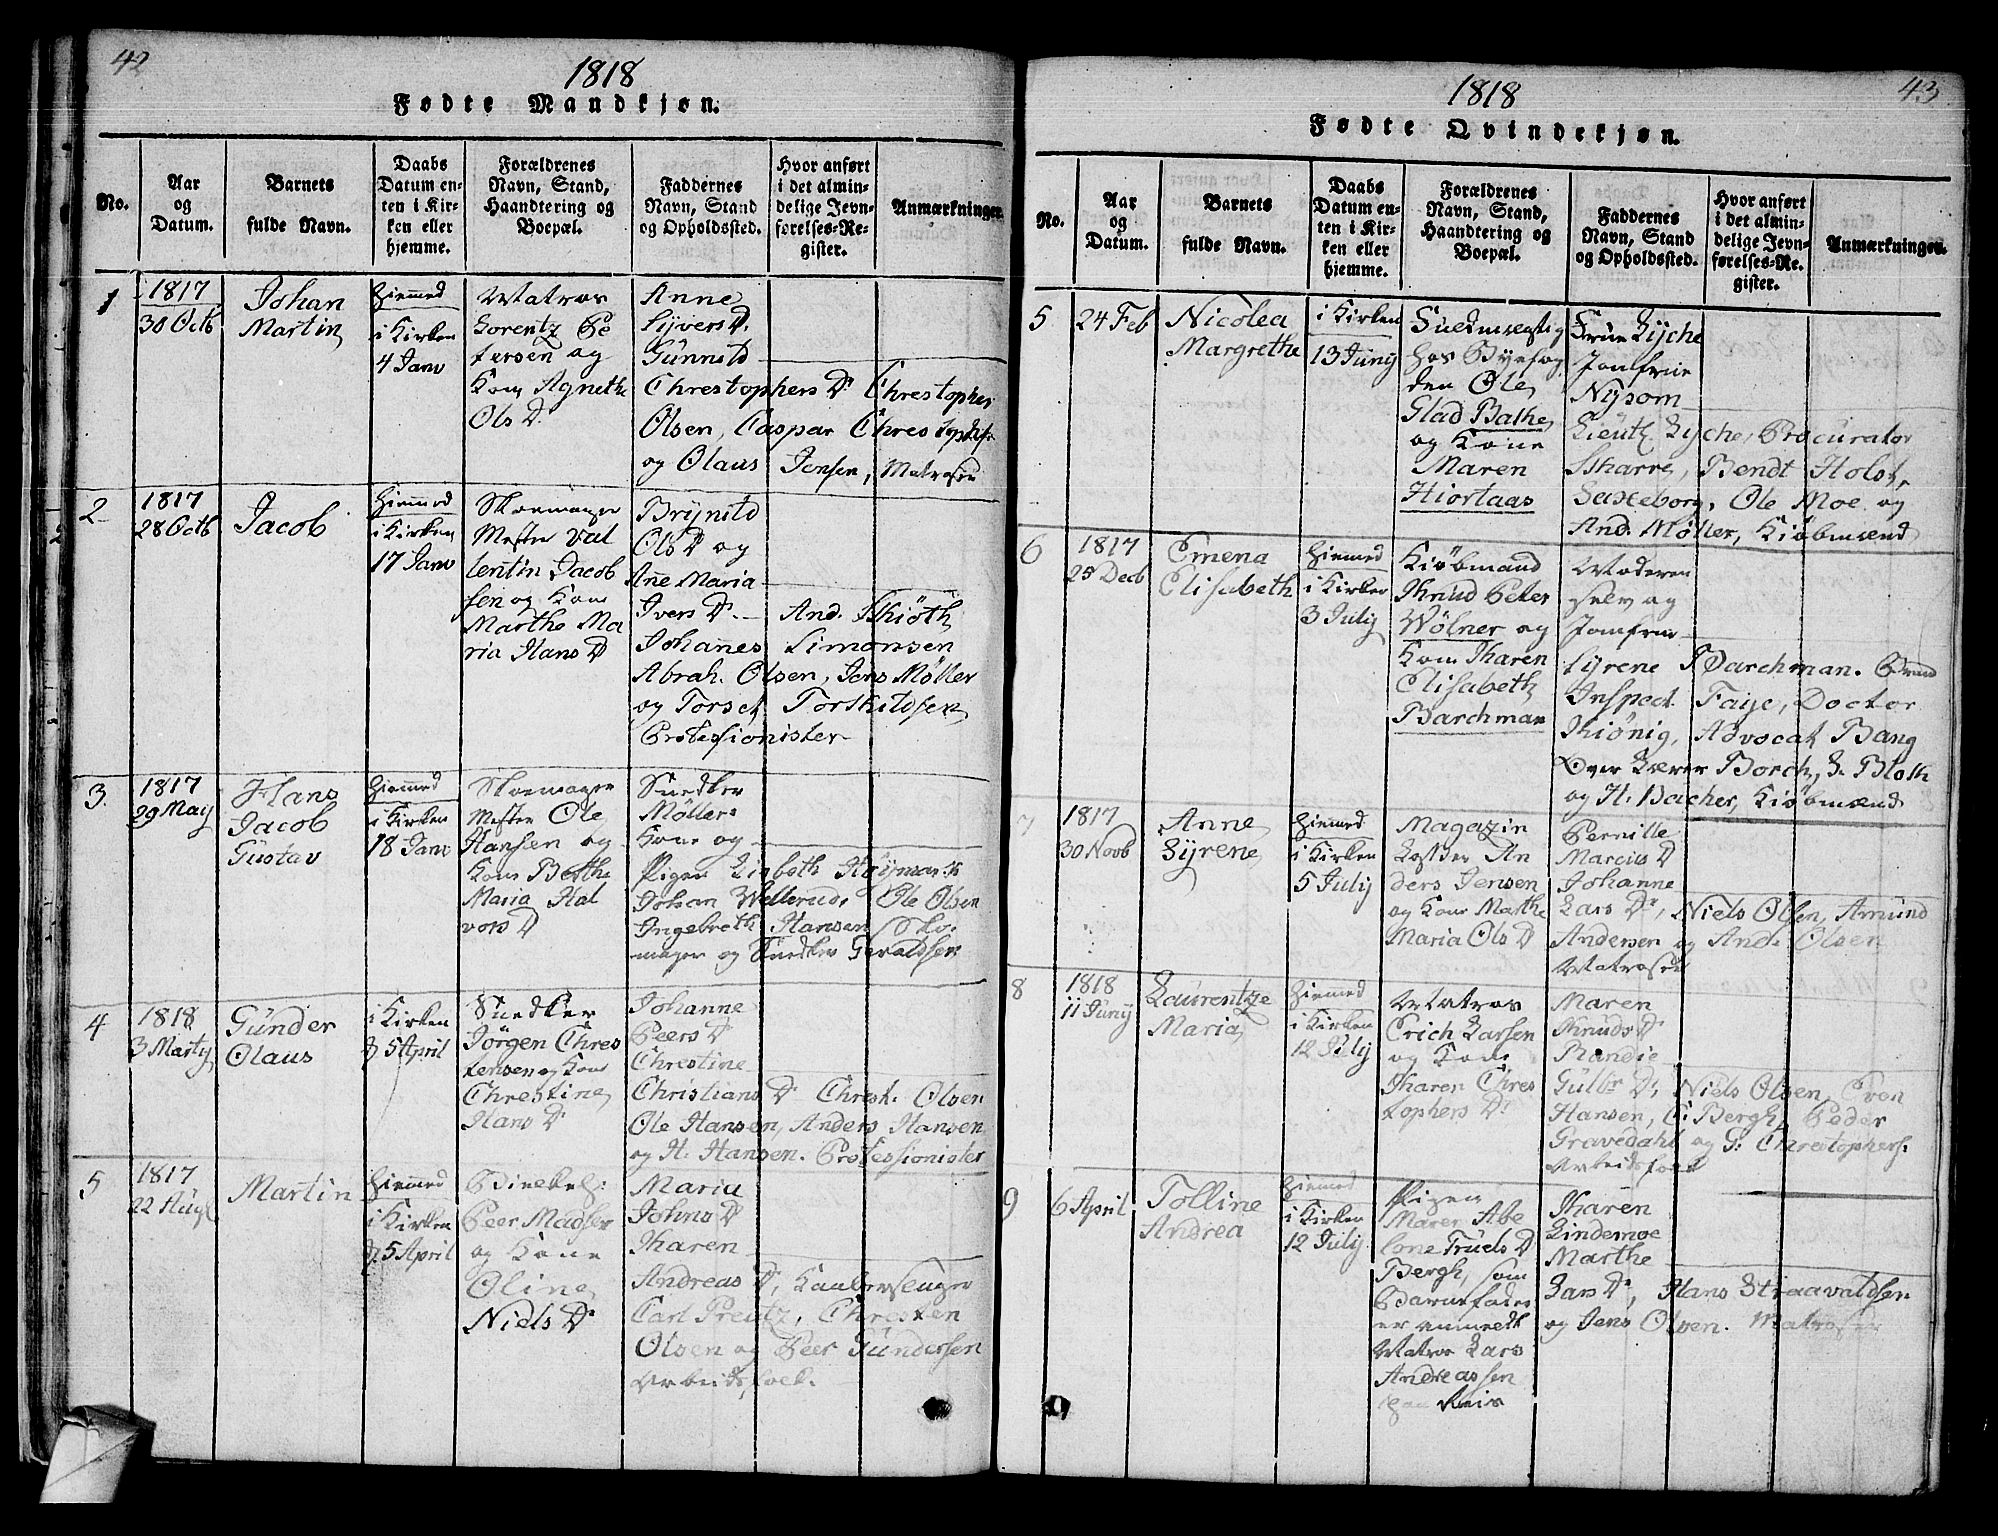 42
1818
Fødte Mandkjøn.
No.
Aar
og
Datum.
Barnets
fulde Navn.
Daabs
Datum en-
ten i Kir-
ken eller
hjemme.
Forældrenes
Navn, Stand,
Haandtering og
Boepæl.
Faddernes
Navn, Stand
og Opholdssted.
Hvor anført
i det almin-
delige Jevn-
førelses-Re-
gister.
Anmærkninger.
1
1817
30 Octb
Johan
Martin
Hiemmed
i Kirken
4 Janv
Matros
Lorentz Pe
tersen og
Kone Agnethe
Ols D.
Anne
Syvers D.
Gunnild
Chrestophers Dr Chrestopher
Olsen, Caspar Chrestophers
og Olaus Jensen, Matroser
2
1817
28 Octb
Jacob
Hiemmed
i Kirken
17 Janv
Skoemager
Mester Val
lentin Jacob
sen og Kone
Marthe Ma
ria Hans D
Brynild
Ols D og
Anne Maria
Ivers Dr. And. Skiöth
Johannes Simonsen
Abrah. Olsen, Jens Møller
og Torsel Torkildsen
Professionister
3
1817
29 May
Hans
Jacob
Gustav
Hiemmed
i Kirken
18 Janv
Skoemager
Mester Ole
Hansen og
Kone Berthe
Maria Hal
vors D
Snedker
Møllers
Kone og
Pigen Lisbeth
Johan Wellerud, Ole Olsen
Ingebreth Hansen Sko-
mager og Snedker Geraldsen
4
1818
3 Marty
Gunder
Olaus
i Kirken
d 5 April
Snedker
Jörgen Chres
tensen og Kone
Chrestine
Hans D
Johanne
Peers D
Chrestine
Christians D Chrest. Olsen
Ole Hansen, Anders Hansen
og H. Hansen. Professionister
5
1817
22 Aug
Martin
Hiemmed
i Kirken
d. 5 April
Peer Madsen
og Kone
Oline
Niels D
Maria
Johns D
Karen
Andreas D,
Carl Preutz, Chresten
Olsen og Peer Gundersen
Arbeidsfolk.
43
1818
Fødte Qvindekjøn.
No.
Aar
og
Datum.
Barnets
fulde Navn.
Daabs
Datum en-
ten i Kir-
ken eller
hjemme.
Forældrenes
Navn, Stand,
Haandtering og
Boepæl.
Faddernes
Navn, Stand
og Opholdssted.
Hvor anført
i det almin-
delige Jevn-
førelses-Re-
gister.
Anmærkninger.
5
24 Feb
Nicolea
Margrethe
i Kirken
13 Juny
Fuldmægtig
hos Byefog
den Ole
Glad Bathe
og Kone
Maren
Hiortaas
Frue Lyche
Jomfrue
Nysom
Lieut. Lyche, Procurator
Skarre, Bendt Holst,
Saxeborg, Ole Moe og
And. Møller, Kiöbmænd
6
1817
25 Decb
Emena
Elisabeth
Hiemmed
i Kirken
3 July
Kiöbmand
Knud Peter
Wölner og
Kone Karen
Elisabeth
Barchman
Moderen
selv og
Jomfrue
Syrene Barchman.
Inspect. Faye, Doctor
Kiönig, Advocat Bang
Over Lærer Borch, S. Bloth
og H. Bacher, Kiöbmænd
7
1817
30 Novb
Anne
Syrene
Hiemmed
i Kirken
5 July
Magazin
An
ders Jensen
og Kone Marthe
Maria Ols D
Pernille
Marcus D
Johanne
Lars Dr, Niels Olsen, Amund
Andersen og And. Olsen
Matroser
8
1818
11 Juny
Laurentze
Maria
Hiemmed
i Kirken
12 July
Matros
Erich Larsen
og Kone
Karen Chres
tophers D
Maren
Knuds D
Randie
Gulbr D, Niels Olsen, Even
Hansen, C. Bergh, Peder
Gravedahl og G. Chrestophers.
Arbeidsfolk
9
6 April
Tolline
Andrea
Hiemmed
i Kirken
12 July
Pigen
Maren Abe
lone Truels D
Bergh, som
Barnefader
er anmeldt
Matros Lars
Andreassen
paa Reis
Karen
Lindemoe
Marthe
Lars Dr, Hans Straavaldsen
og Jens Olsen. Matroser